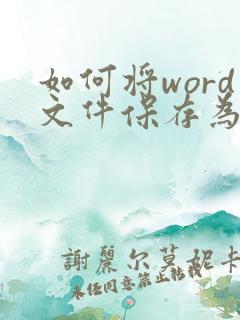 如何将word
文件保存为
謝麗尔莫妮卡
未经同意禁止转载